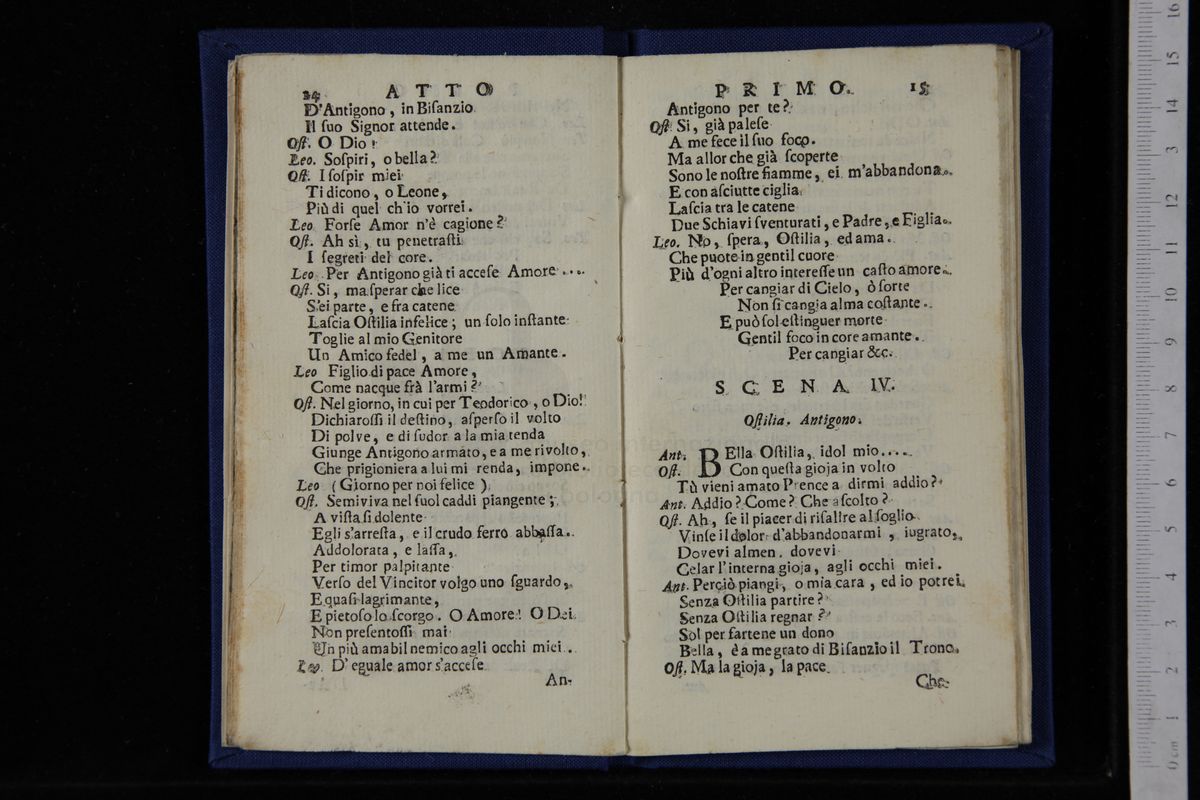 24 ATTO
D'Antigono, in Biſanzio
Il ſuo Signor attende.
Oſt. O Dio!
Leo. Soſpiri, o bella?
Oſt. I ſoſpir miei
Ti dicono, o Leone,
Più di quel ch'io vorrei.
Leo Forſe Amor n'è cagione?
Oſt. Ah sì, tu penetraſti
I ſegreti del core.
Leo. Per Antigono già ti acceſe Amore....
Oſt. Si, ma ſperar che lice
S'ei parte, e fra catene
Laſcia Oſtilia infelice; un ſolo inſtante
Toglie al mio Genitore
Un Amico fedel, a me un Amante.
Leo Figlio di pace Amore,
Come nacque frà l'armi?
Oſt. Nel giorno, in cui per Teodorico, o Dio!
Dichiaroſſi il deſtino, aſperſo il volto
Di polve, e di ſudor a la mia tenda
Giunge Antigono armato, e a me rivolto,
Che prigioniera a lui mi renda, impone.
Leo (Giorno per noi felice)
Oſt. Semiviva nel ſuol caddi piangente;
A viſta ſi dolente
Egli s'arreſta, e il crudo ferro abbaſſa.
Addolorata, e laſſa,
Per timor palpitante
Verſo del Vincitor volgo uno ſguardo,
E quaſi lagrimante,
E pietoſo lo ſcorgo. O Amore! O Dei
Non preſentoſſi mai
Un più amabil nemico agli occhi miei.
Leo. D'eguale amor s'acceſe
An-
PRIMO. 15
Antigono per te?
Oſt. Si, già paleſe
A me fece il ſuo foco.
Ma allor che già ſcoperte
Sono le noſtre fiamme, ei m'abbandona.
E con aſciutte ciglia
Laſcia tra le catene
Due Schiavi ſventurati, e Padre, e Figlia.
Leo. No, ſpera, Oſtilia, ed ama.
Che puote in gentil cuore
Più d'ogni altro intereſſe un caſto amore.
Per cangiar di Cielo, ò ſorte
Non ſi cangia alma coſtante.
E può ſol eſtinguer morte
Gentil foco in core amante.
Per cangiar &c.
SCENA IV.
Oſtilia, Antigono.
Ant. BElla Oſtilia, idol mio....
Oſt. Con queſta gioja in volto
Tù vieni amato Prence a dirmi addio?
Ant. Addio? Come? Che aſcolto?
Oſt. Ah, ſe il piacer di riſalire al ſoglio
Vinſe il dolor d'abbandonarmi, iugrato,
Dovevi almen, dovevi
Celar l'interna gioja, agli occhi miei.
Ant. Perciò piangi, o mia cara, ed io potrei
Senza Oſtilia partire?
Senza Oſtilia regnar?
Sol per fartene un dono
Bella, è a me grato di Biſanzio il Trono.
Oſt. Ma la gioja, la pace
Che